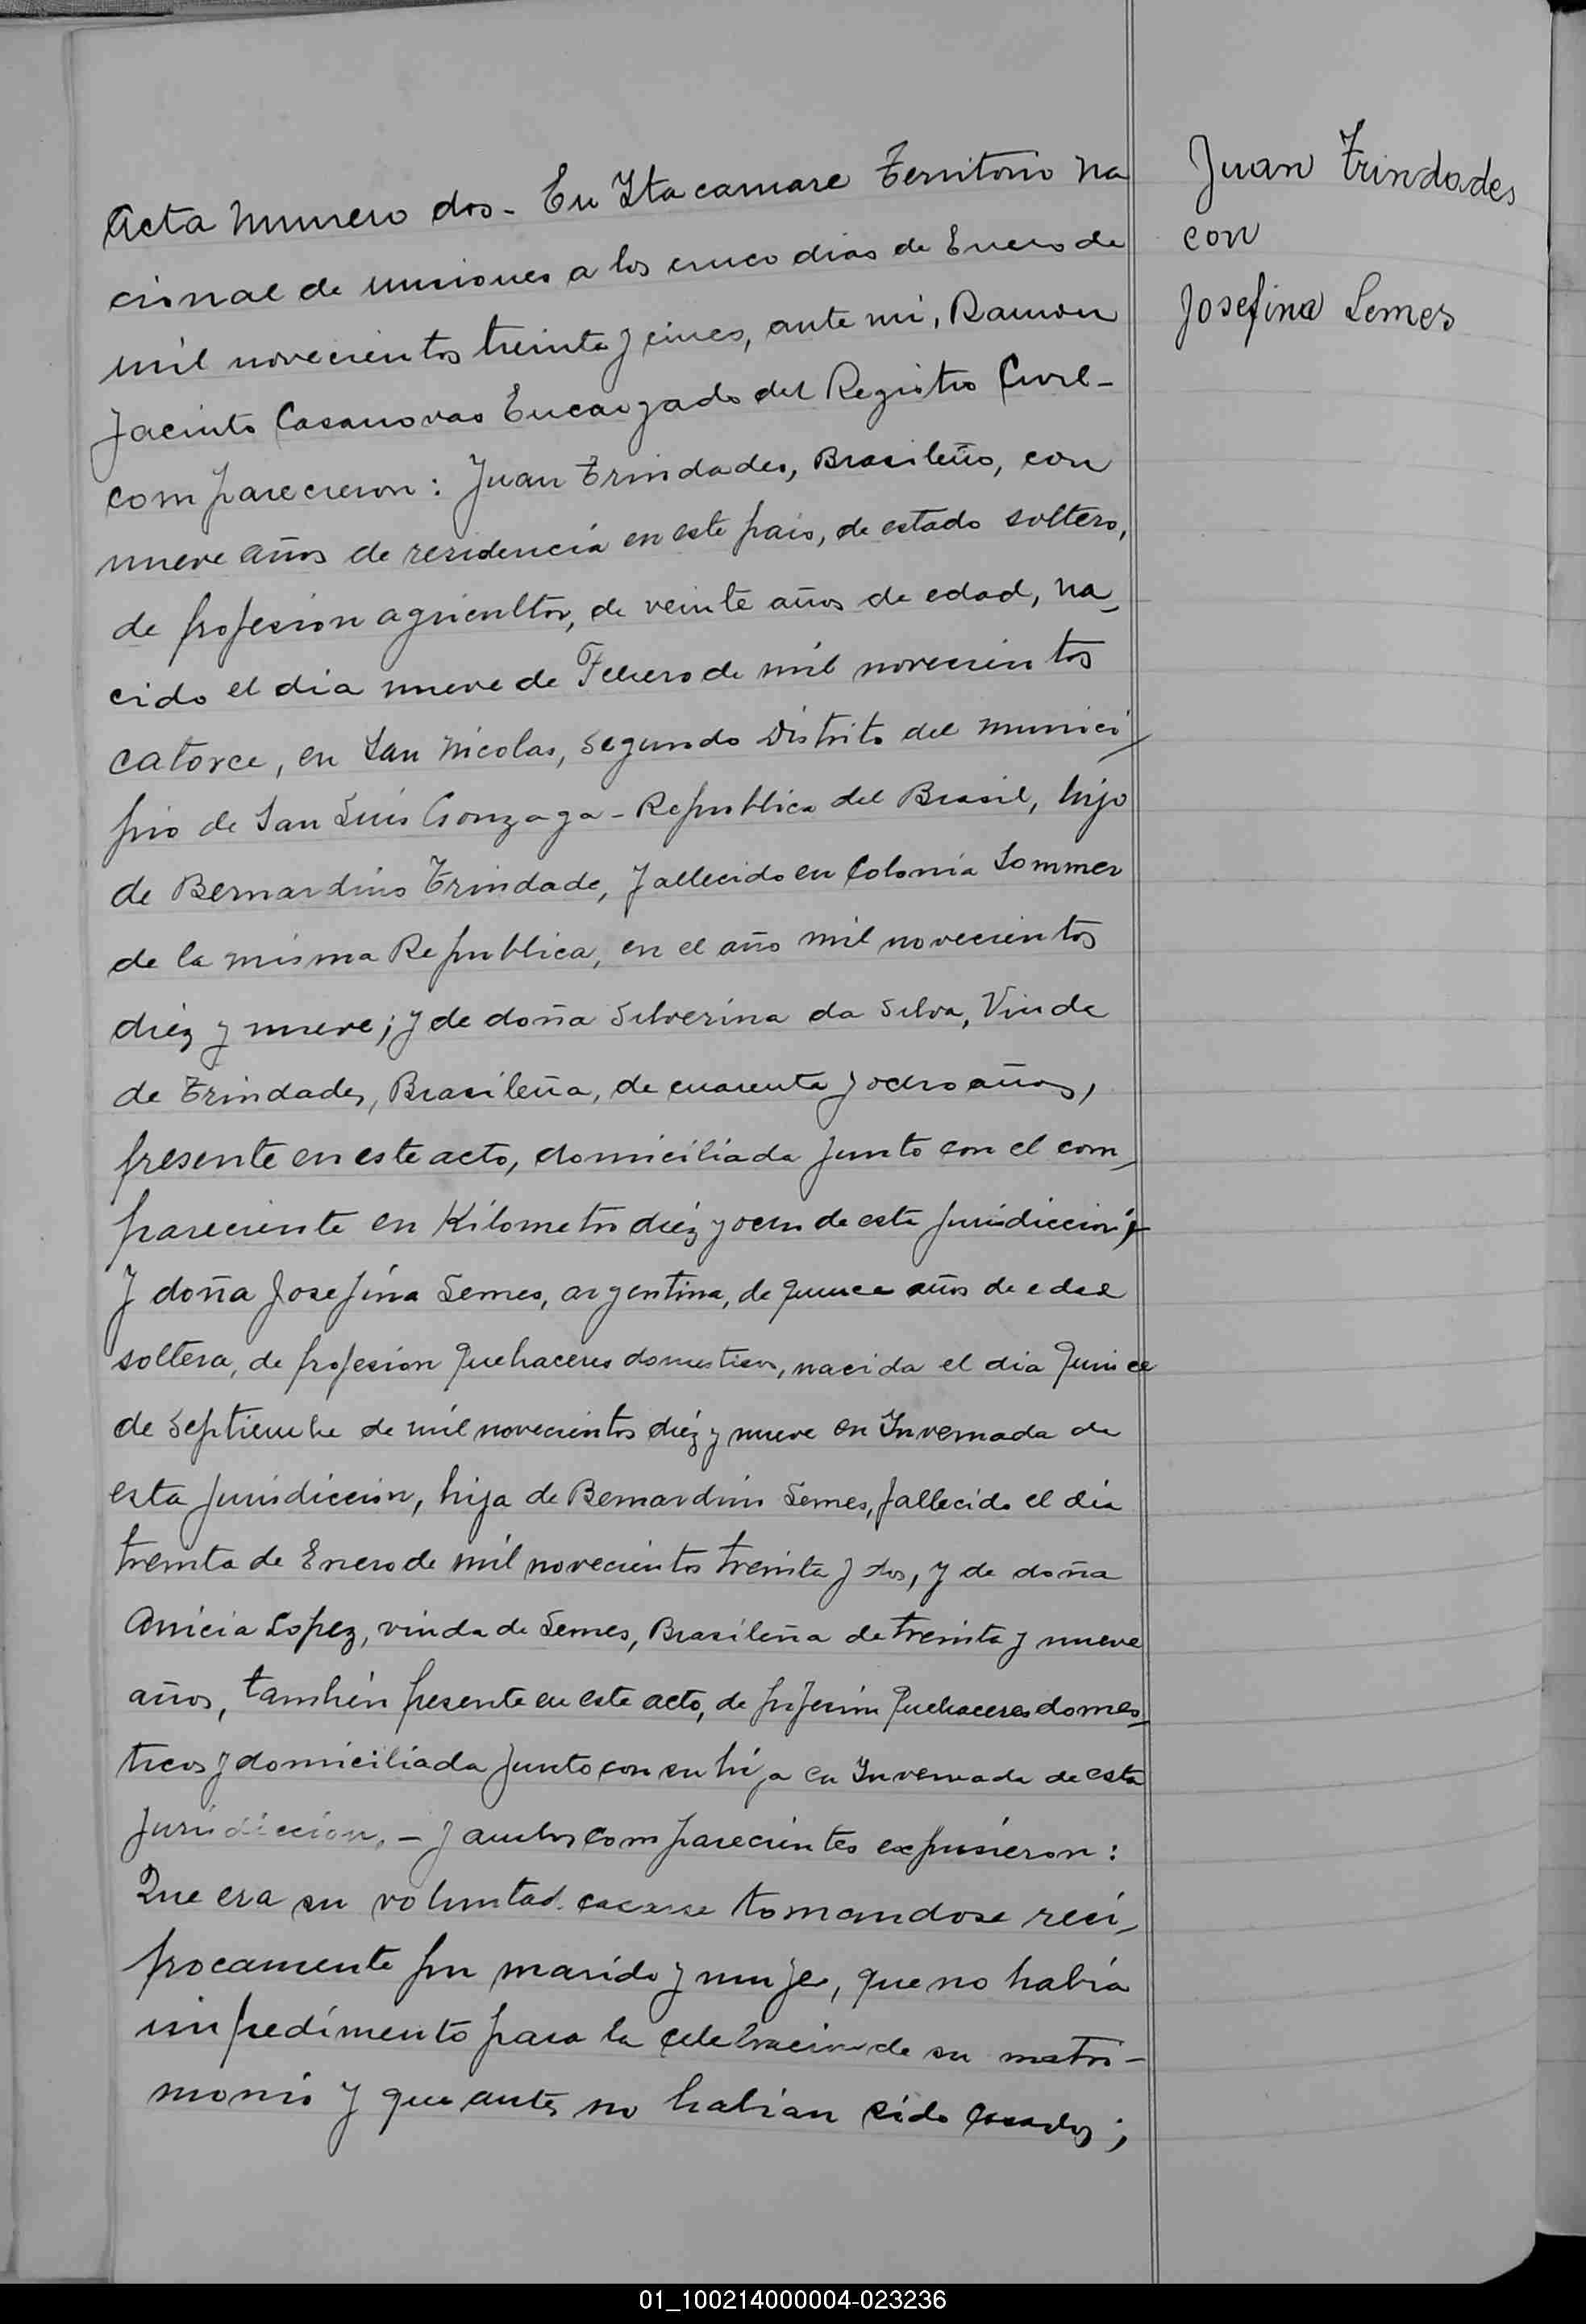 Acta Numero dos - En Itacaruare Territorio Na
cional de Misiones a los cinco dias de Enero de
mil novecientos treinta y cinco, ante mi, Ramon
Jacinto Casanovas Encargado del Registro Civil -
comparecieron: Juan Trindades, Brasileño, con
nueve años de residencia en este pais, de estado soltero,
de profesion agricultor, de veinte años de edad, na_
cido el dia nueve de Febrero de mil novecientos
catorce, en San Nicolas, segundo Distrito del Munici_
pio de San Luis Gonzaga - Republica del Brasil, hijo
de Bernardino Trindade, fallecido en Colonia Sommer
de la misma Republica, en el año mil novecientos
diéz y nueve; y de doña Silverina da Silva, Viuda
de Trindades, Brasileña, de cuarenta y ocho años,
presente en este acto, domiciliada junto con el com_
pareciente en Kilometro diéz y ocho de esta jurisdiccion;
Y doña Josefina Lemes, argentina, de quince años de edad
soltera, de profesion quehaceres domesticos, nacida el dia quince
de Septiembre de mil novecientos diéz y nueve en Invernada de
esta jurisdiccion, hija de Bernardino Lemes, fallecido el dia
treinta de Enero de mil novecientos treinta y dos, y de doña
Anicia Lopez, viuda de Lemes, Brasileña de treinta y nueve
años, también presente en este acto, de profesion quehaceres domes_
ticos y domiciliada junto con su hija en Invernada de esta
jurisdiccion. - Y ambos comparecientes expusieron:
Que era su voluntad casarse tomandose reci_
procamente por marido y mujer, que no habia
impedimento para la celebracion de su matri-
monio y que antes no habian sido casados;
Juan Trindades
con
Josefina Lemes
01_100214000004-023236